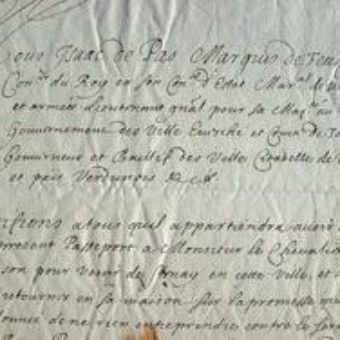 ous Isaac de Pas Marquis de Feu
Con.er du Roy en son Con.el d'Estat Mar.al de
et armées Lieutenant gnal pour sa Ma.té au
Gouvernement des Ville Evesché et Conté de To
Gouverneur et Bailif des Villes Citadelle de
et pais Verdunois &c.
ifions a tous qu'il appartiendra avoir
rresent Passeport a Monsieur le Chevali
son pour venir de en cette Ville, et
retournir en sa maison sur la promesse qu
donnée de ne rien entreprendre contre le ser